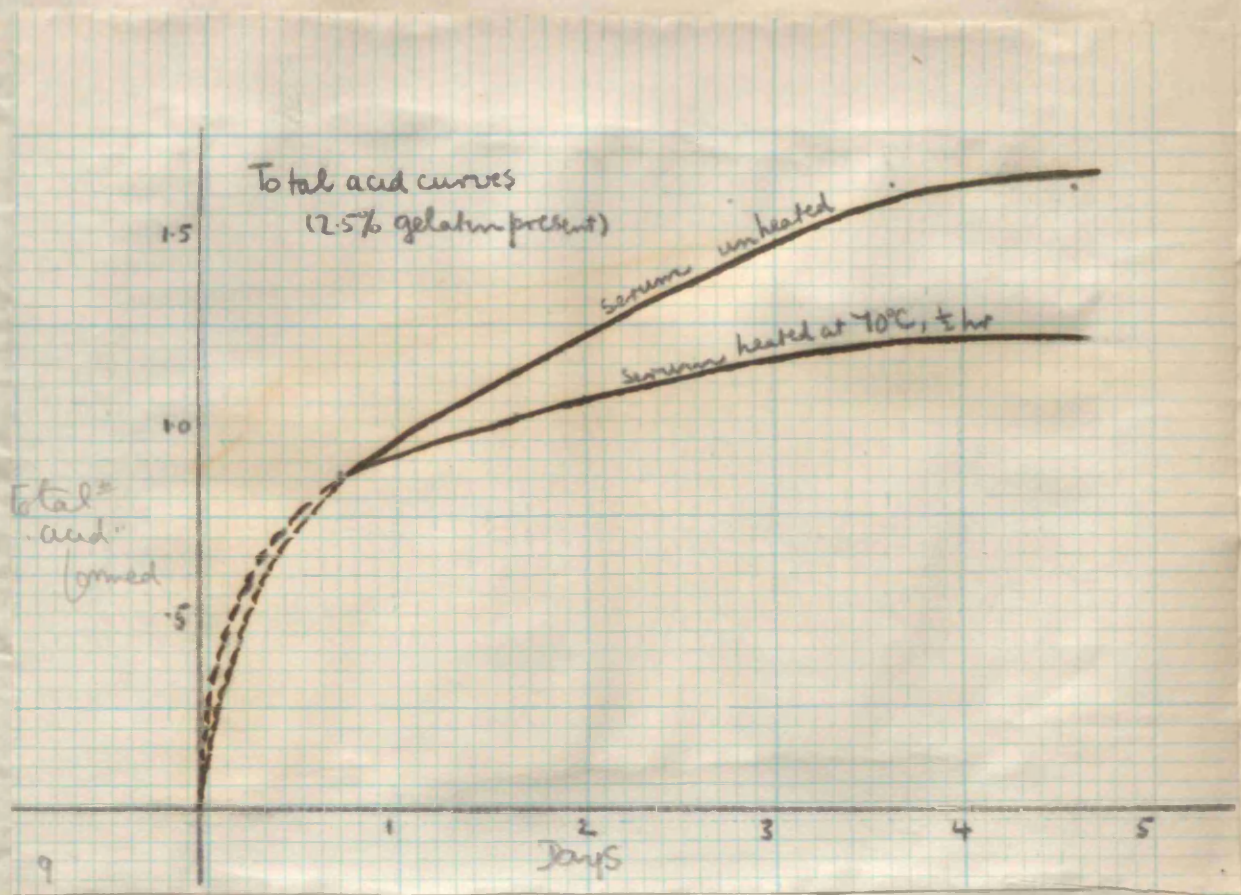 Total acid curves
(2.5% gelatin present)
1.5
serum unheated
serum heated at 70°C, ½ hr
1.0
Total
acid
formed
.5
1
2
3
4
5
Days
9